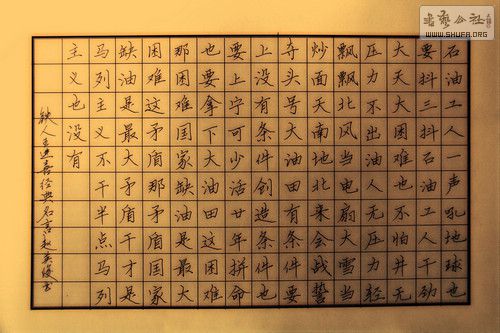 石油工人一声吼地球也
要抖三抖石油工人干劲
大天大困难也不怕井无
压力不出油人无压力轻
飘飘北风当电扇大雪当
炒面天南地北来会战誓
夺头号大油田有条件要
上没有条件创造条件也
要上宁可少活廿年拼命
也要拿下大油田这困难
那困难国家缺油是最大
困难这矛盾那矛盾国家
缺油是最大矛盾干才是
马列主义不干半点马列
主义也没有
铁人王进喜经典名言赵英俊书
书艺公社
WWW.SHUFA.ORG